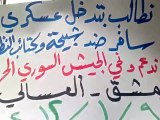 نطالب بتدخل عسكري
سافر ضد شبيحة وكتائب
ندعم وفي الجيش السوري الحر
دمشق - العسالي
٢٠١٢/١/٩